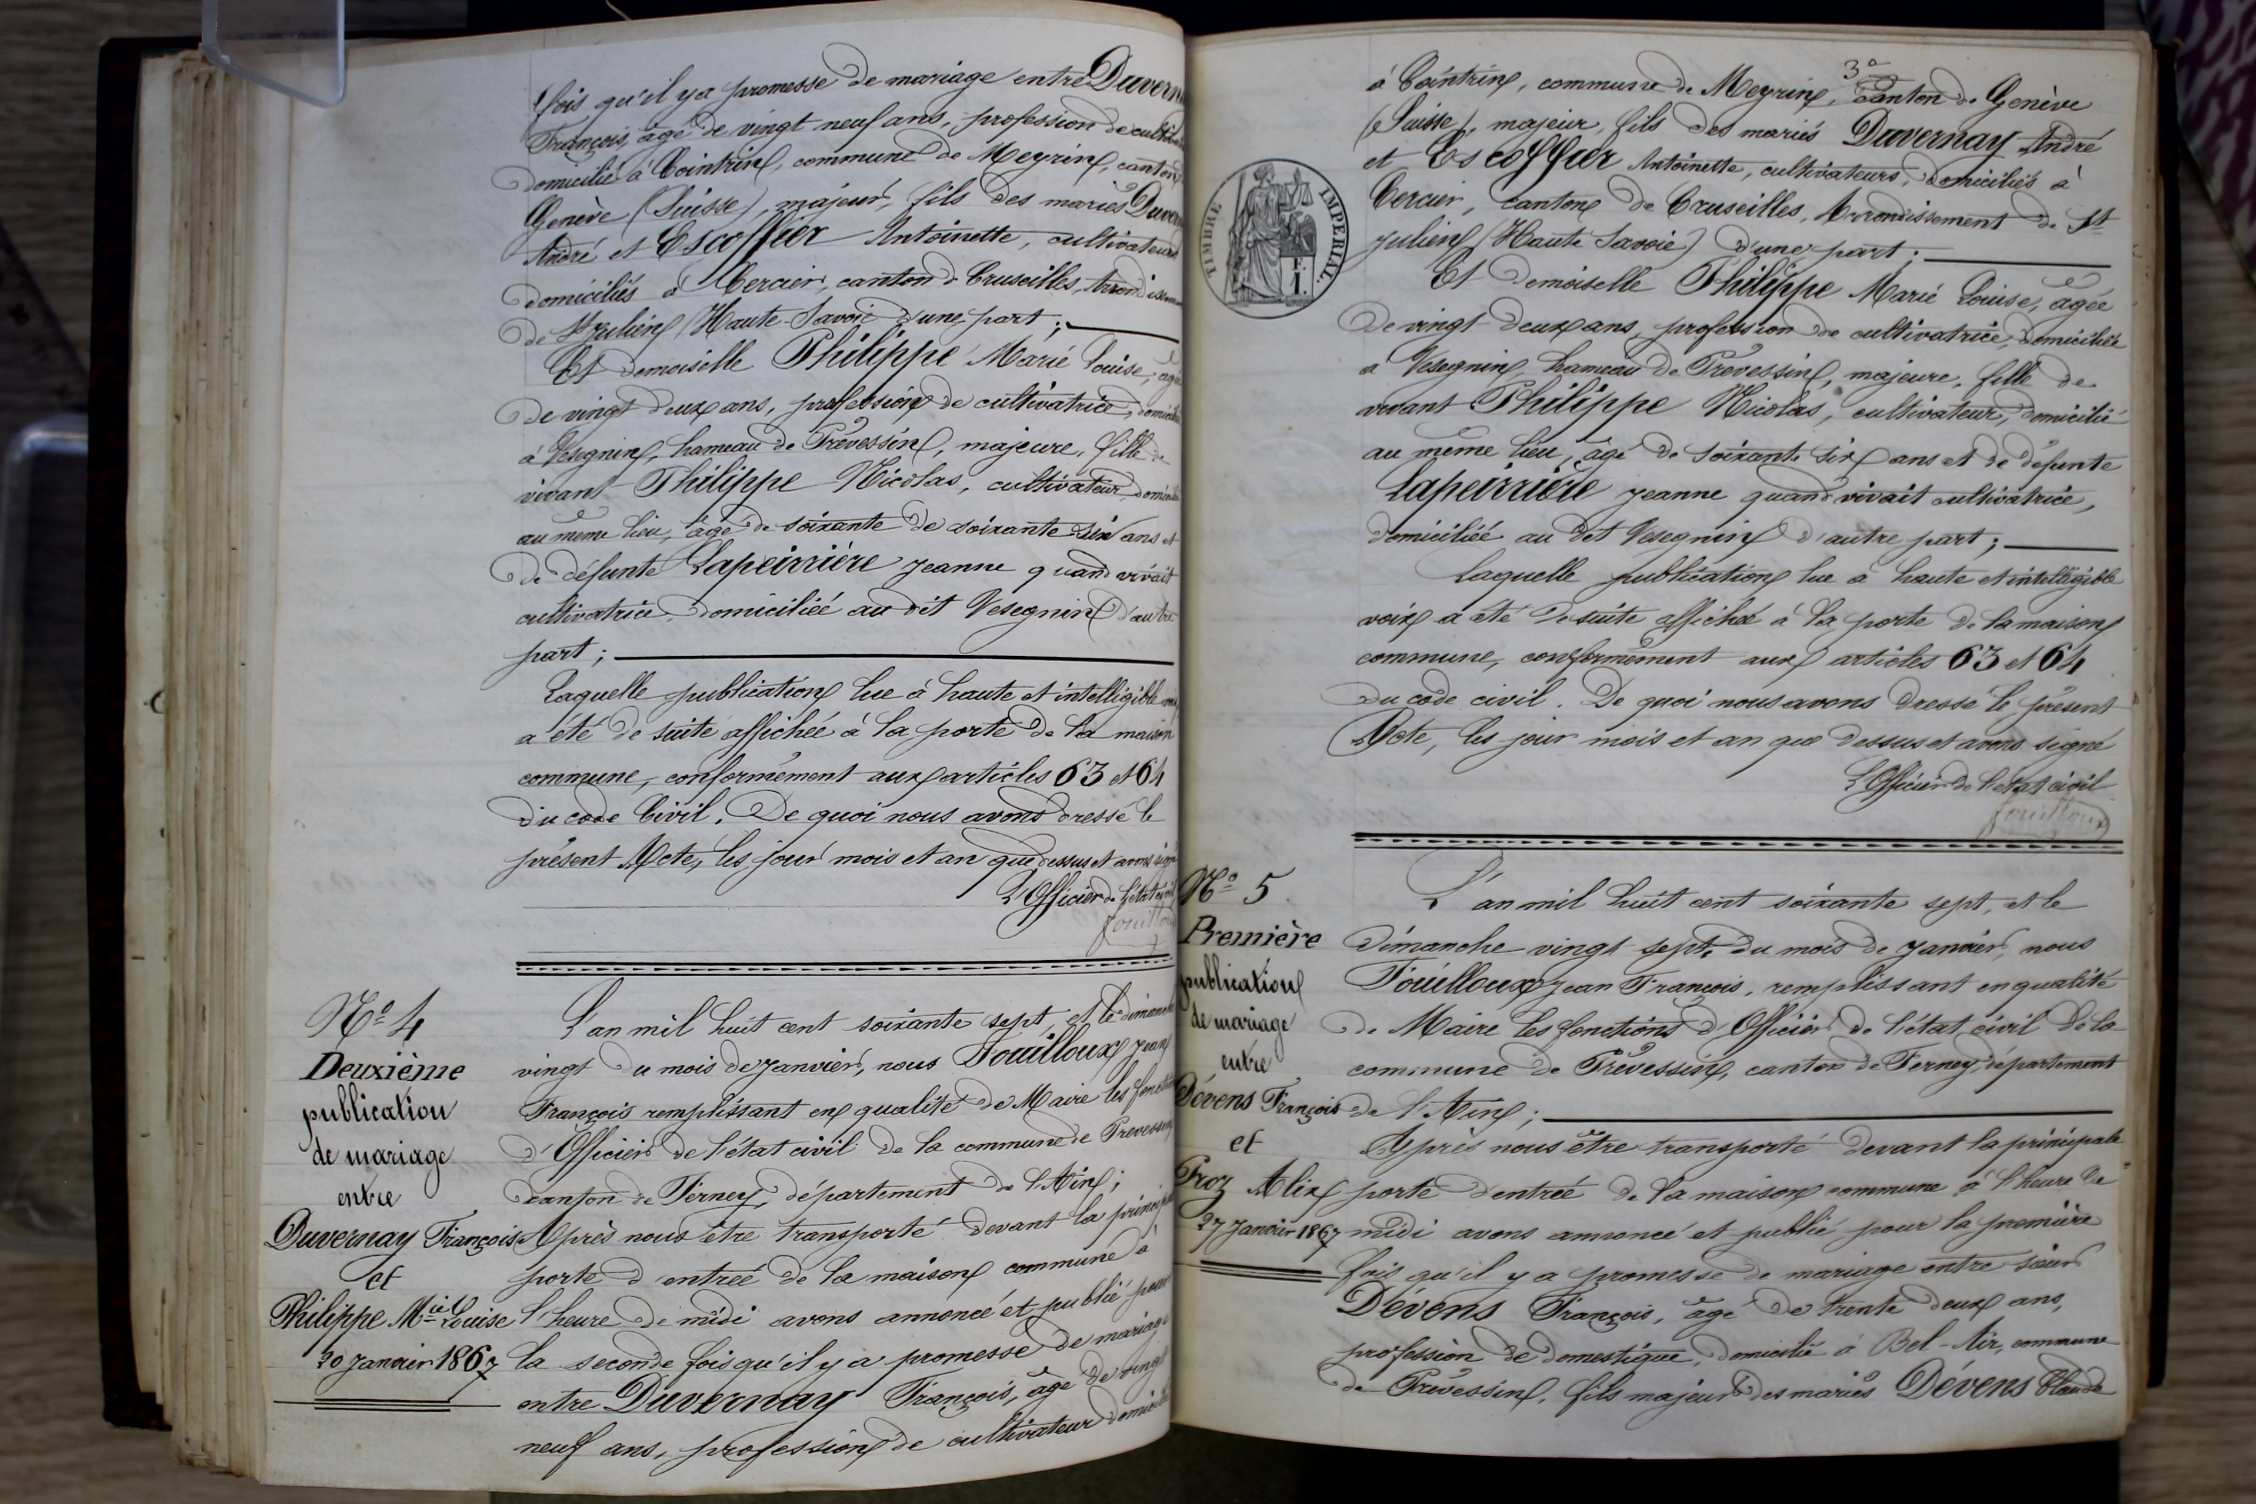 fois qu'il y a promesse de mariage entre Duvern
François, âgé de vingt neuf ans, profession de cultiva
domicilié à Cointrin, commune de Meyrin, canton
Genève (Suisse), majeur, fils des mariés Duver
André et Escoffier Antoinette, cultivateurs
domiciliés à Cercier, canton de Cruseilles, Arrondissem
de St Julien (Haute-Savoie d'une part;
Et demoiselle Philippe Marie Louise, âgé
de vingt deux ans, profession de cultivatrice, domicili
à Vesegnin, hameau de Prévessin, majeure, fille de
vivant Philippe Nicolas, cultivateur, domicilié
au même lieu, âgé de soixante de soixante six ans et
de défunte Lapeirrière Jeanne quand vivait
cultivatrice domiciliée au dit Vesegnin d'autre
part;
Laquelle publication lue à haute et intelligible voix
a été de suite affichée à la porte de la maison
commune, conformément aux articles 63 et 64
du code Civil. De quoi nous avons dressé le
présent Acte, les jour mois et an que dessus et avons signé
L'Officier de l'état civil
Fouilloux
N° 4
Deuxième
publication
de mariage
entre
Duvernay François
et
Philippe Mie Louise
20 Janvier 1867
L'an mil huit cent soixante sept, et le dimanche
vingt du mois de Janvier, nous Fouilloux Jean
François remplissant en qualité de Maire les fonctions
d'Officier de l'état civil de la commune de Prevessin
canton de Ferney, département de l'Ain;
Après nous être transporté devant la principale
porte d'entrée de la maison commune à
l'heure de midi avons annoncé et publié pour
la seconde fois qu'il y a promesse de mariage
entre Duvernay François, âgé de vingt
neuf ans, profession de cultivateur domicilié
3e
à Cointrin, commune de Meyrin, Canton de Genève
(Suisse), majeur, fils des mariés Duvernay André
et Escoffier Antoinette, cultivateurs, domiciliés à
Cercier, canton de Cruseilles, Arrondissement de St
Julien (Haute Savoie) d'une part;
TIMBRE IMPERIAL.
1 F.
Et demoiselle Philippe Marie Louise, âgée
de vingt deux ans, profession de cultivatrice, domiciliée
a Vesegnin, hameau de Prévessin, majeure, fille de
vivant Philippe Nicolas, cultivateur, domicilié
au même lieu, âgé de soixante six ans et de défunte
Lapeirrière Jeanne quand vivait cultivatrice,
domiciliée au dit Vesegnin d'autre part;
Laquelle publication lue à haute et intelligible
voix a été de suite affichée à la porte de la maison
commune, conformément aux articles 63 et 64
du code civil. De quoi nous avons dressé le présent
Acte, les jour mois et an que dessus et avons signé
L'Officier de l'état civil
Fouilloux
N° 5
Première
publication
de mariage
entre
Dévens François
et
Froz Alix
27 Janvier 1867
L'an mil huit cent soixante sept, et le
dimanche vingt sept du mois de Janvier, nous
Fouilloux Jean François, remplissant en qualité
de Maire les fonctions d'Officier de l'état civil de la
commune de Prévessin, canton de Ferney, département
de l'Ain;
Après nous être transporté devant la principale
porte d'entrée de la maison commune à l'heure de
midi avons annoncé et publié pour la première
fois qu'il y a promesse de mariage entre sieur
Dévens François, âgé de trente deux ans,
profession de domestique, domicilié à Bel-Air, commune
de Prévessin, fils majeur des mariés Dévens Claude